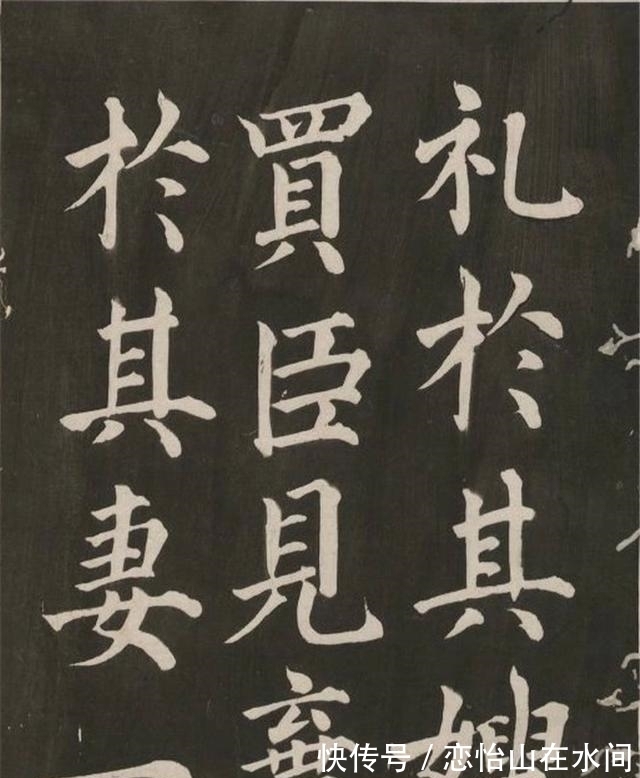 礼於其嫂
買臣見棄
於其妻
快传号 / 恋怡山在水间